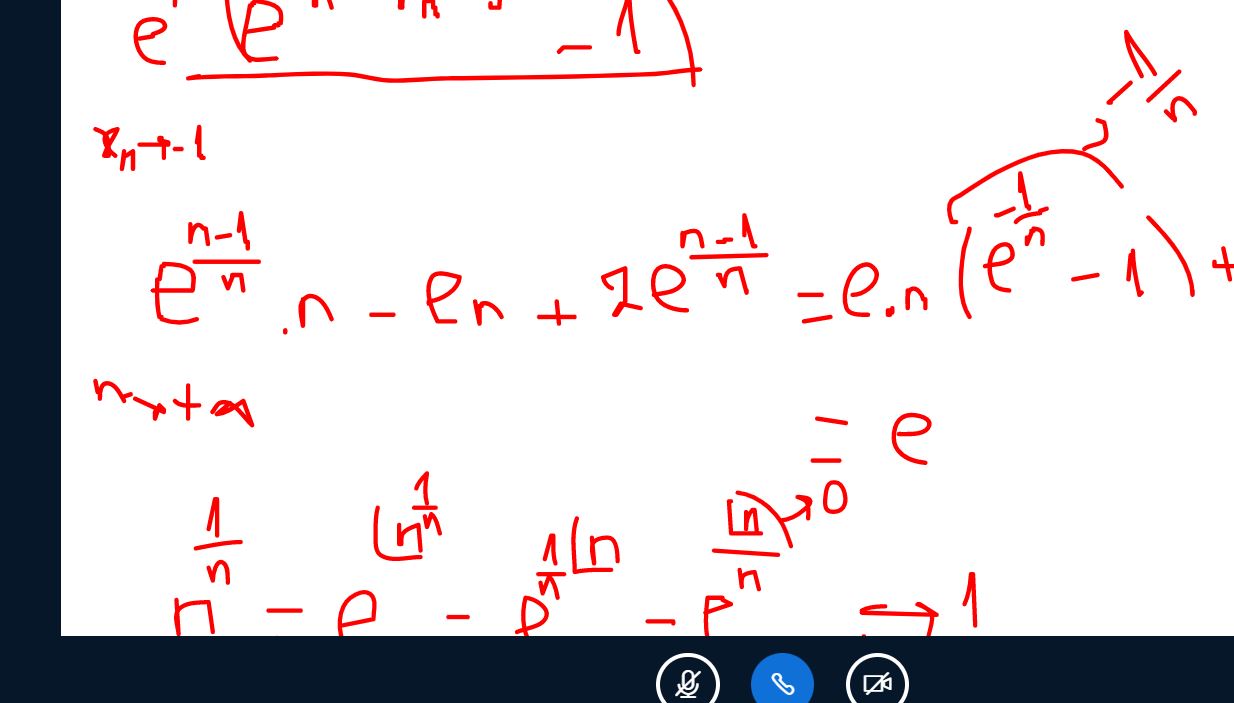 e (e - 1)
-1/n
xₙ → -1
e^((n-1)/n) . n - en + 2e^((n-1)/n) = e.n (e^(-1/n) - 1) +
n → +∞
= e
n^(1/n) = e^(Ln n^(1/n)) = e^(1/n Ln n) = e^(Ln n / n) → 1
0